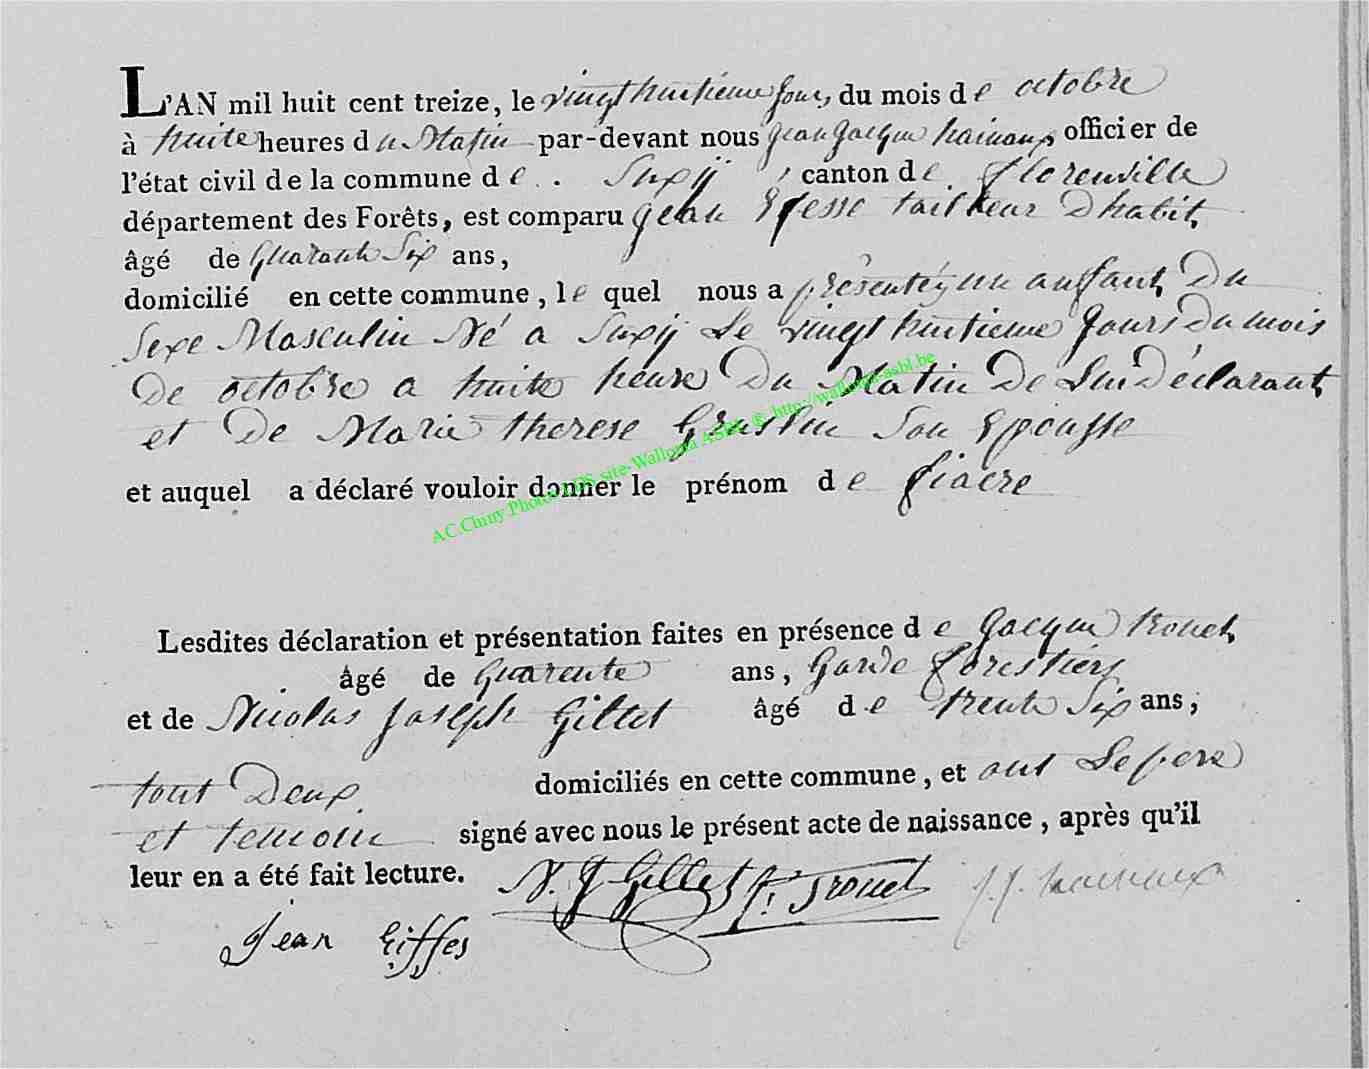 L'AN mil huit cent treize, le vingt huitieme jour, du mois de octobre
à huite heures du Matin par-devant nous jean jacque hainaux officier de
l'état civil de la commune de . . Suxÿ , canton de florenville
département des Forêts, est comparu jean Effesse tailleur Dhabit,
âgé de Quarante Six ans,
domicilié en cette commune, le quel nous a présentéz un anffant Du
Sexe Masculin Né a Suxij Le vingt huitieme Jours Du mois
De octobre a huite heure Du Matin De Lui Déclarant
et De Marie therese Son Epousse
et auquel a déclaré vouloir donner le prénom de fiacre
AC.Cluny Photos LDS site-Wallonia ASBL © http://wallonia-asbl.be
Lesdites déclaration et présentation faites en présence de Jacque trouet,
âgé de Quarente ans, Garde forestiers
et de Nicolas Joseph Gillet âgé de trente Six ans,
tout Deux domiciliés en cette commune, et ont Le pere
et temoin signé avec nous le présent acte de naissance, après qu'il
leur en a été fait lecture. N. J Gillet J. Trouet J. J. hainaux
Jean Eiffes